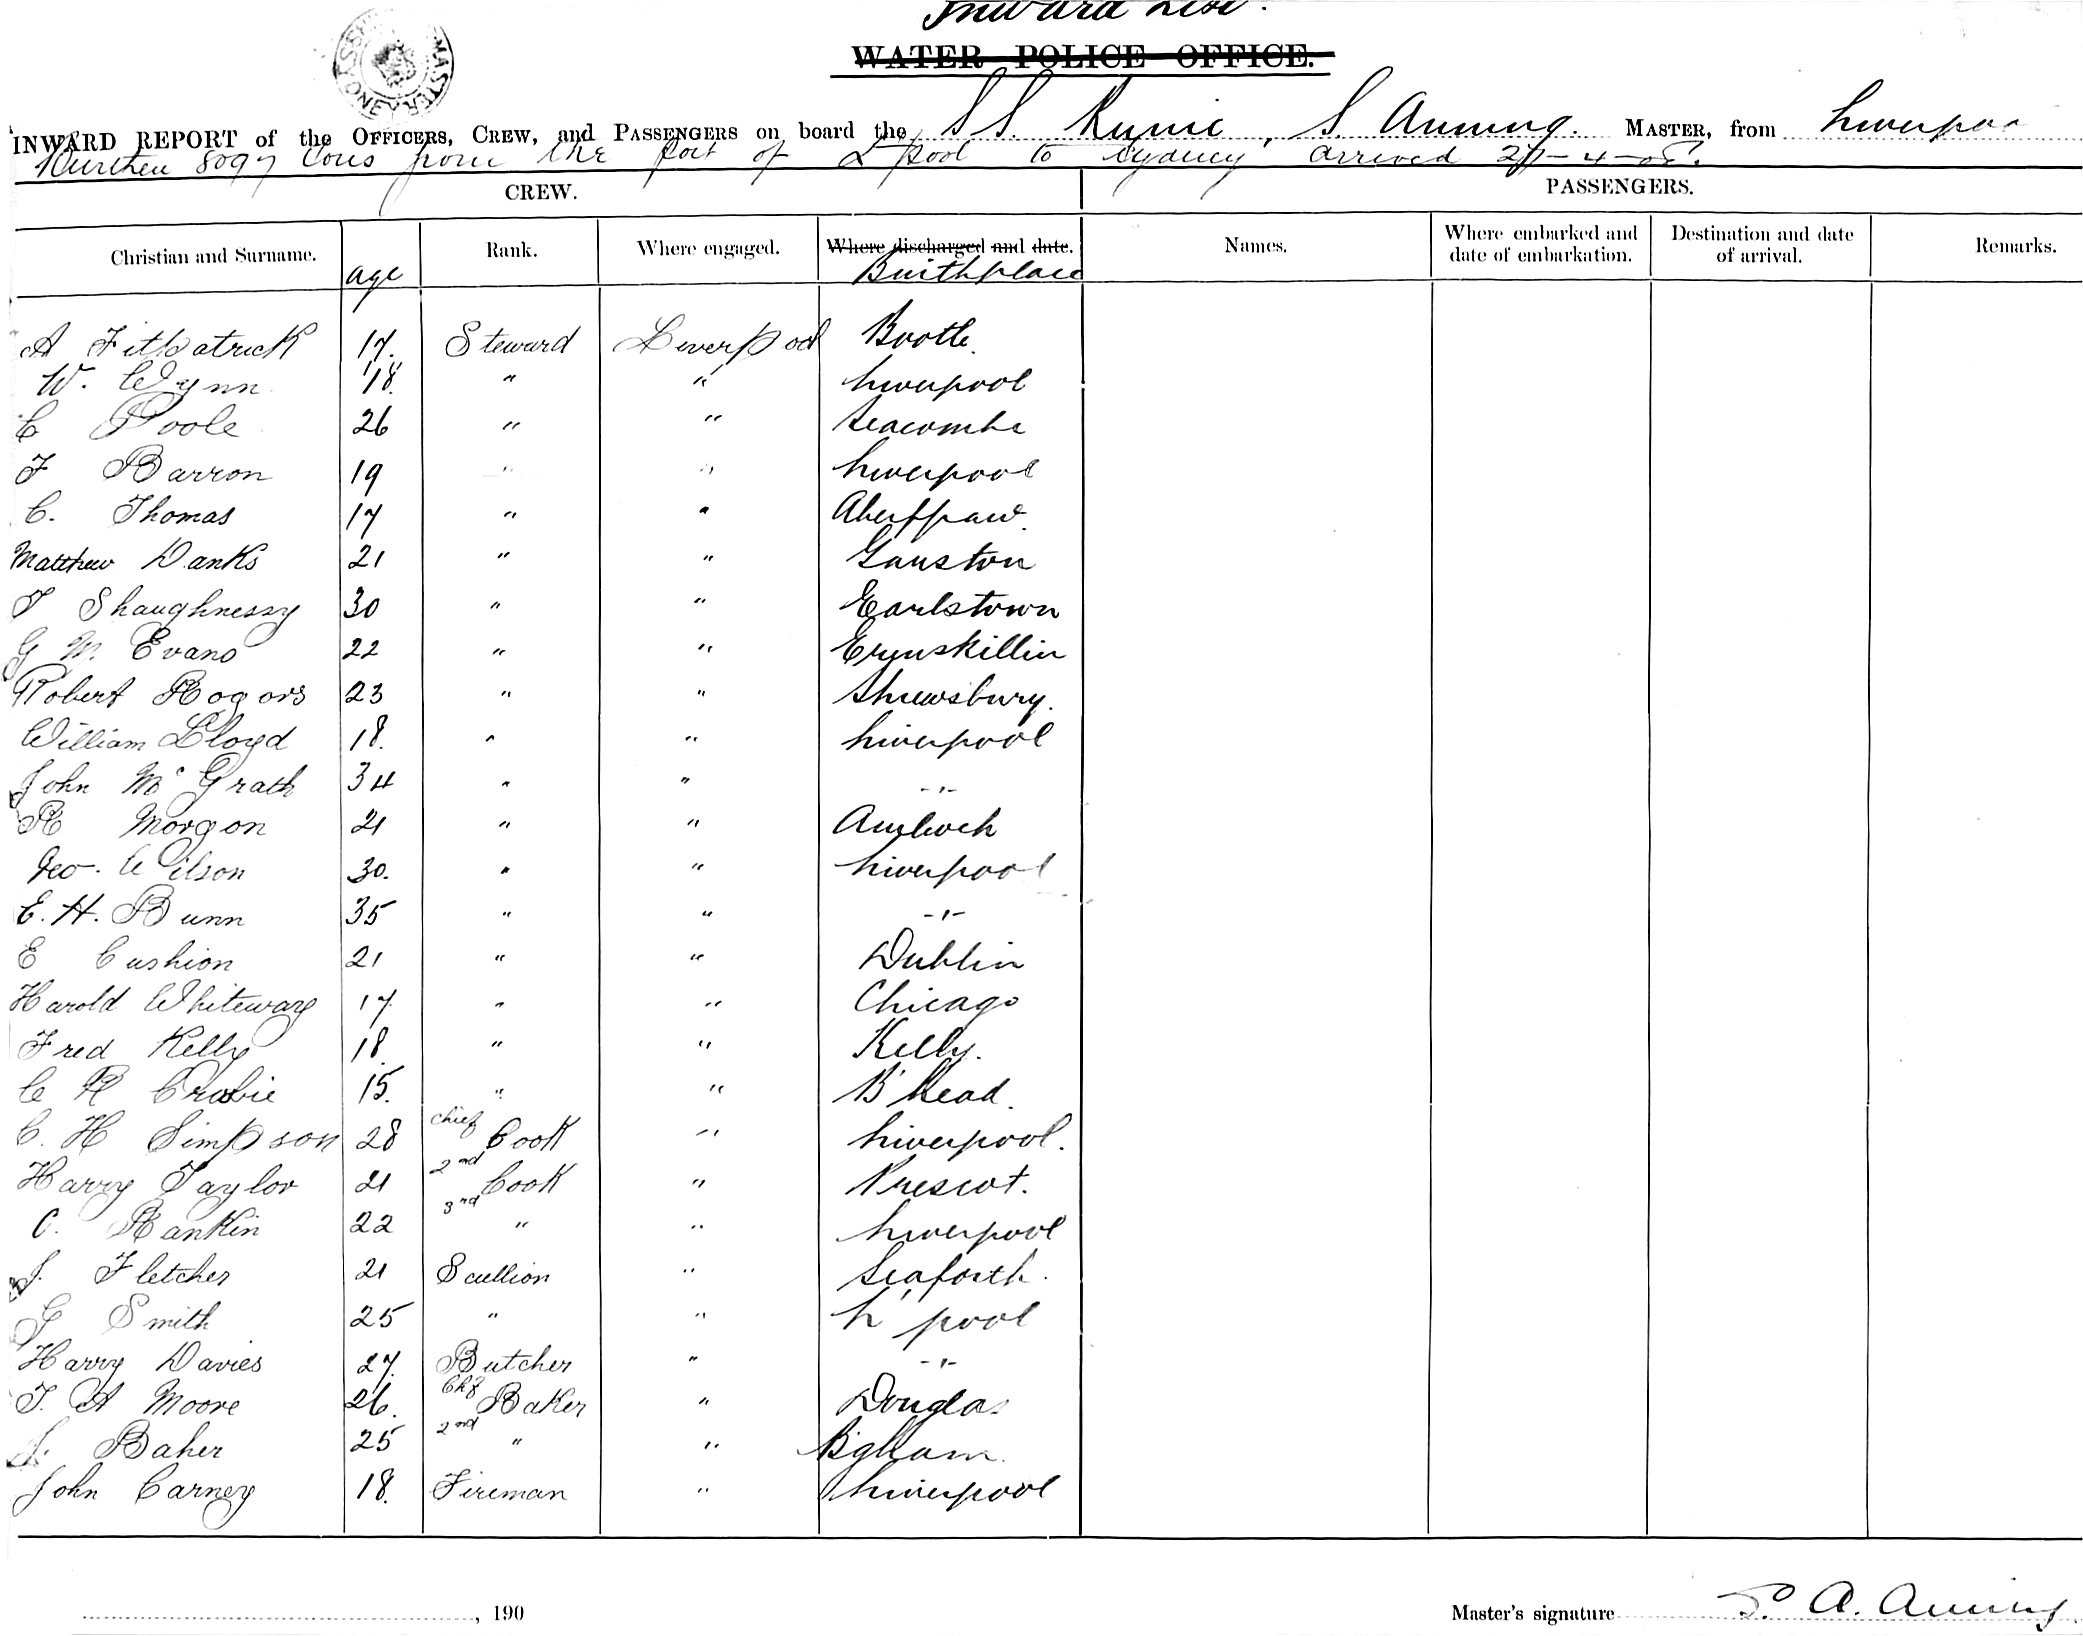 Inward List.
WATER POLICE OFFICE.
INWARD REPORT of the OFFICERS, CREW, and PASSENGERS on board the S.S. Runic, S. Anning. MASTER, from Liverpoo
Burthen 8097 Tons from the Port of L'pool to Sydney Arrived 27-4-08.
CREW. PASSENGERS.
Christian and Surname. age Rank. Where engaged. Where discharged and date. Birthplace Names. Where embarked and date of embarkation. Destination and date of arrival. Remarks.
A Fitzpatrick 17. Steward Liverpool Bootle.
W. Wynn 18. " " Liverpool
C Poole 26 " " Seacombe
F Barron 19 " " Liverpool
C. Thomas 17 " " Aberffraw.
Matthew Danks 21 " " Garston
T Shaughnessy 30 " " Earlstown
G M. Evans 22 " " Ennskillin
Robert Rogors 23 " " Shrewsbury.
William Lloyd 18. " " Liverpool
John McGrath 34 " " -"-
R Morgon 21 " " Amlwch
Geo. Wilson 30. " " Liverpool
E. H. Bunn 35 " " -"-
E Cushion 21 " " Dublin
Harold Whiteway 17. " " Chicago
Fred Kelly 18. " " Kelly.
C R Crobie 15. " " B'head.
C. H Simpson 28 Chief Cook " Liverpool.
Harry Taylor 21 2nd Cook " Prescot.
C. Rankin 22 3rd " " Liverpool
J. Fletcher 21 Scullion " Seaforth.
G Smith 25 " " L'pool
Harry Davies 27. Butcher " -"-
T. A Moore 26. Chf Baker " Douglas
J. Baher 25 2nd " " B'gham.
John Carney 18. Fireman " Liverpool
, 190
Master's signature S. A. Anning.